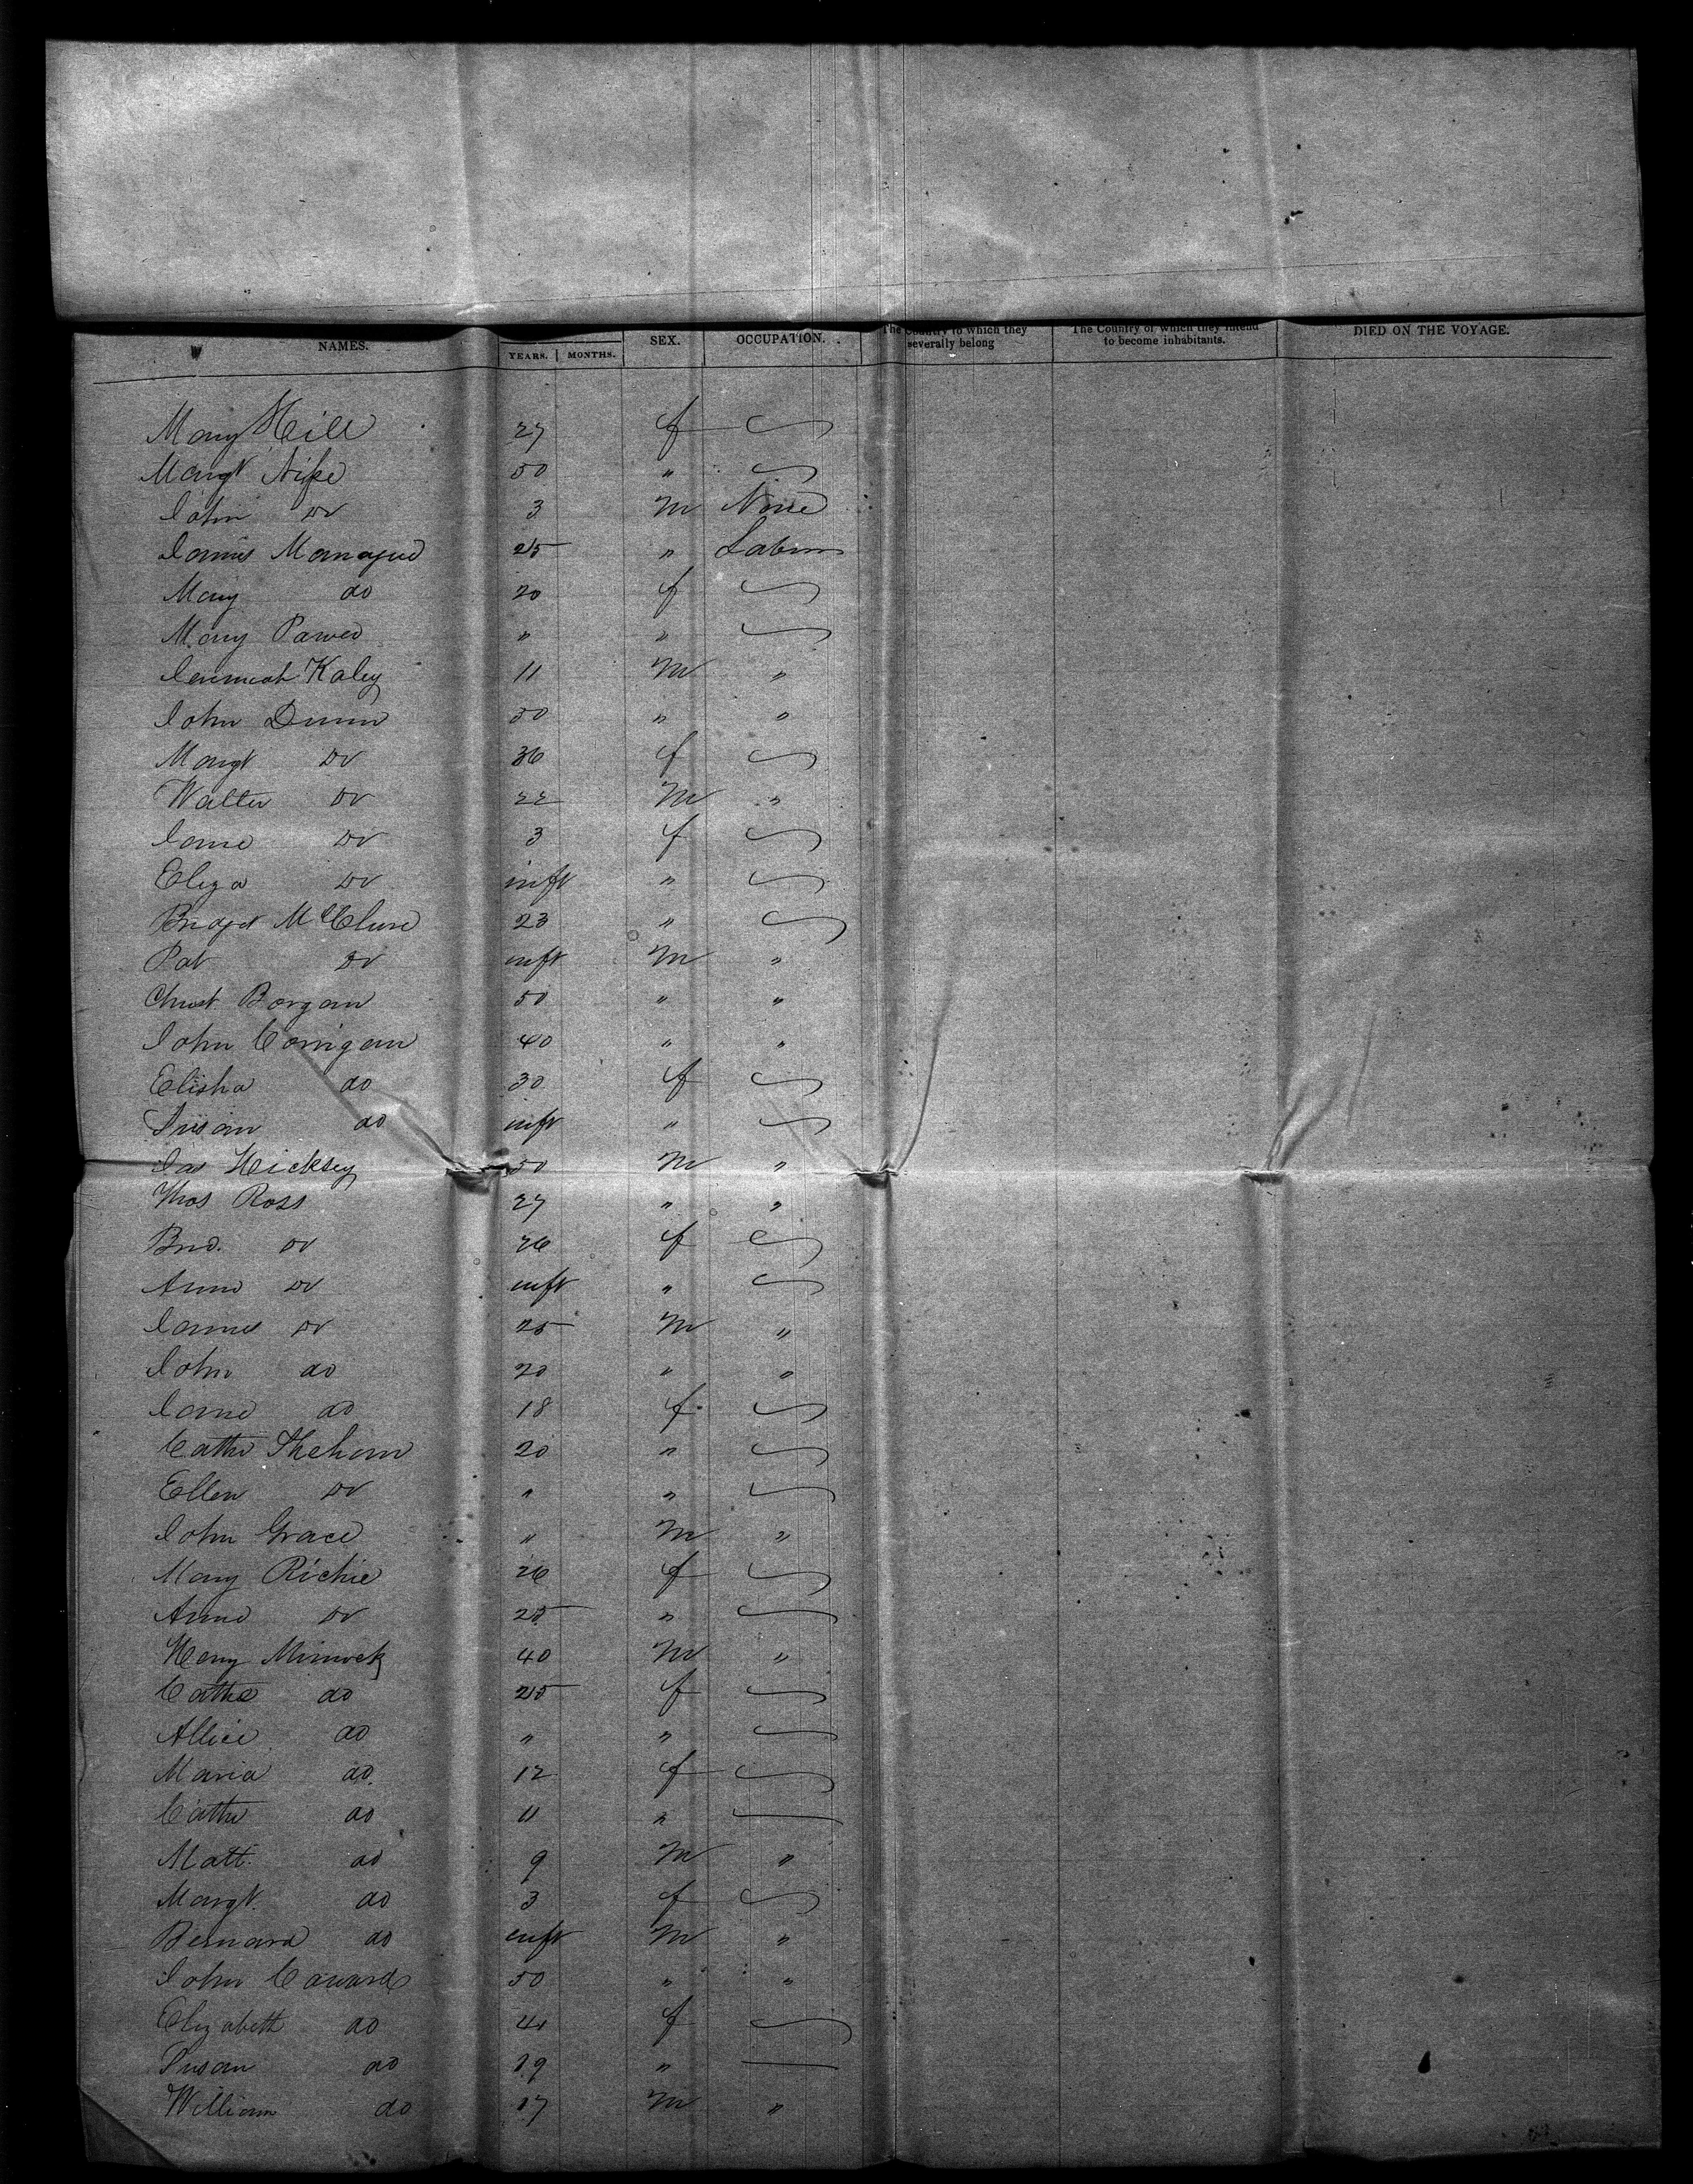 NAMES. YEARS. MONTHS. SEX. OCCUPATION. The Country to which they severally belong The Country of which they intend to become inhabitants. DIED ON THE VOYAGE.
Mary Hill 27 f
Margt 50 "
John Do 3 M None
James Manague 25 " Labour
Mary do 20 f
Mary Power " "
Jeremiah Kaley 11 M "
John Dunn 50 " "
Margt Do 36 f
Walter Do 22 M "
Jane Do 3 f
Eliza Do inft "
Bridget McClure 23 "
Pat Do inft M "
Christ. Borgan 50 " "
John Corrigan 40 " "
Elisha do 30 f
Susan do inft "
Jas Hicksey 50 M "
Thos Ross 27 " "
Brid. Do 26 f
Anne Do inft "
James Do 25 M "
John do 20 " "
Jane do 18 f
Cathe Shehan 20 "
Ellen Do " "
John Grace " M "
Mary Richie 26 f
Anne Do 25 "
Henry 40 M "
Cathe do 25 f
Allice do " "
Maria do. 12 f
Cathe do 11 "
Matt. do 9 M "
Margt. do 3 f
Bernard do inft M "
John Coward 50 " "
Elizabeth do 41 f
Susan do 19 "
William do 17 M "